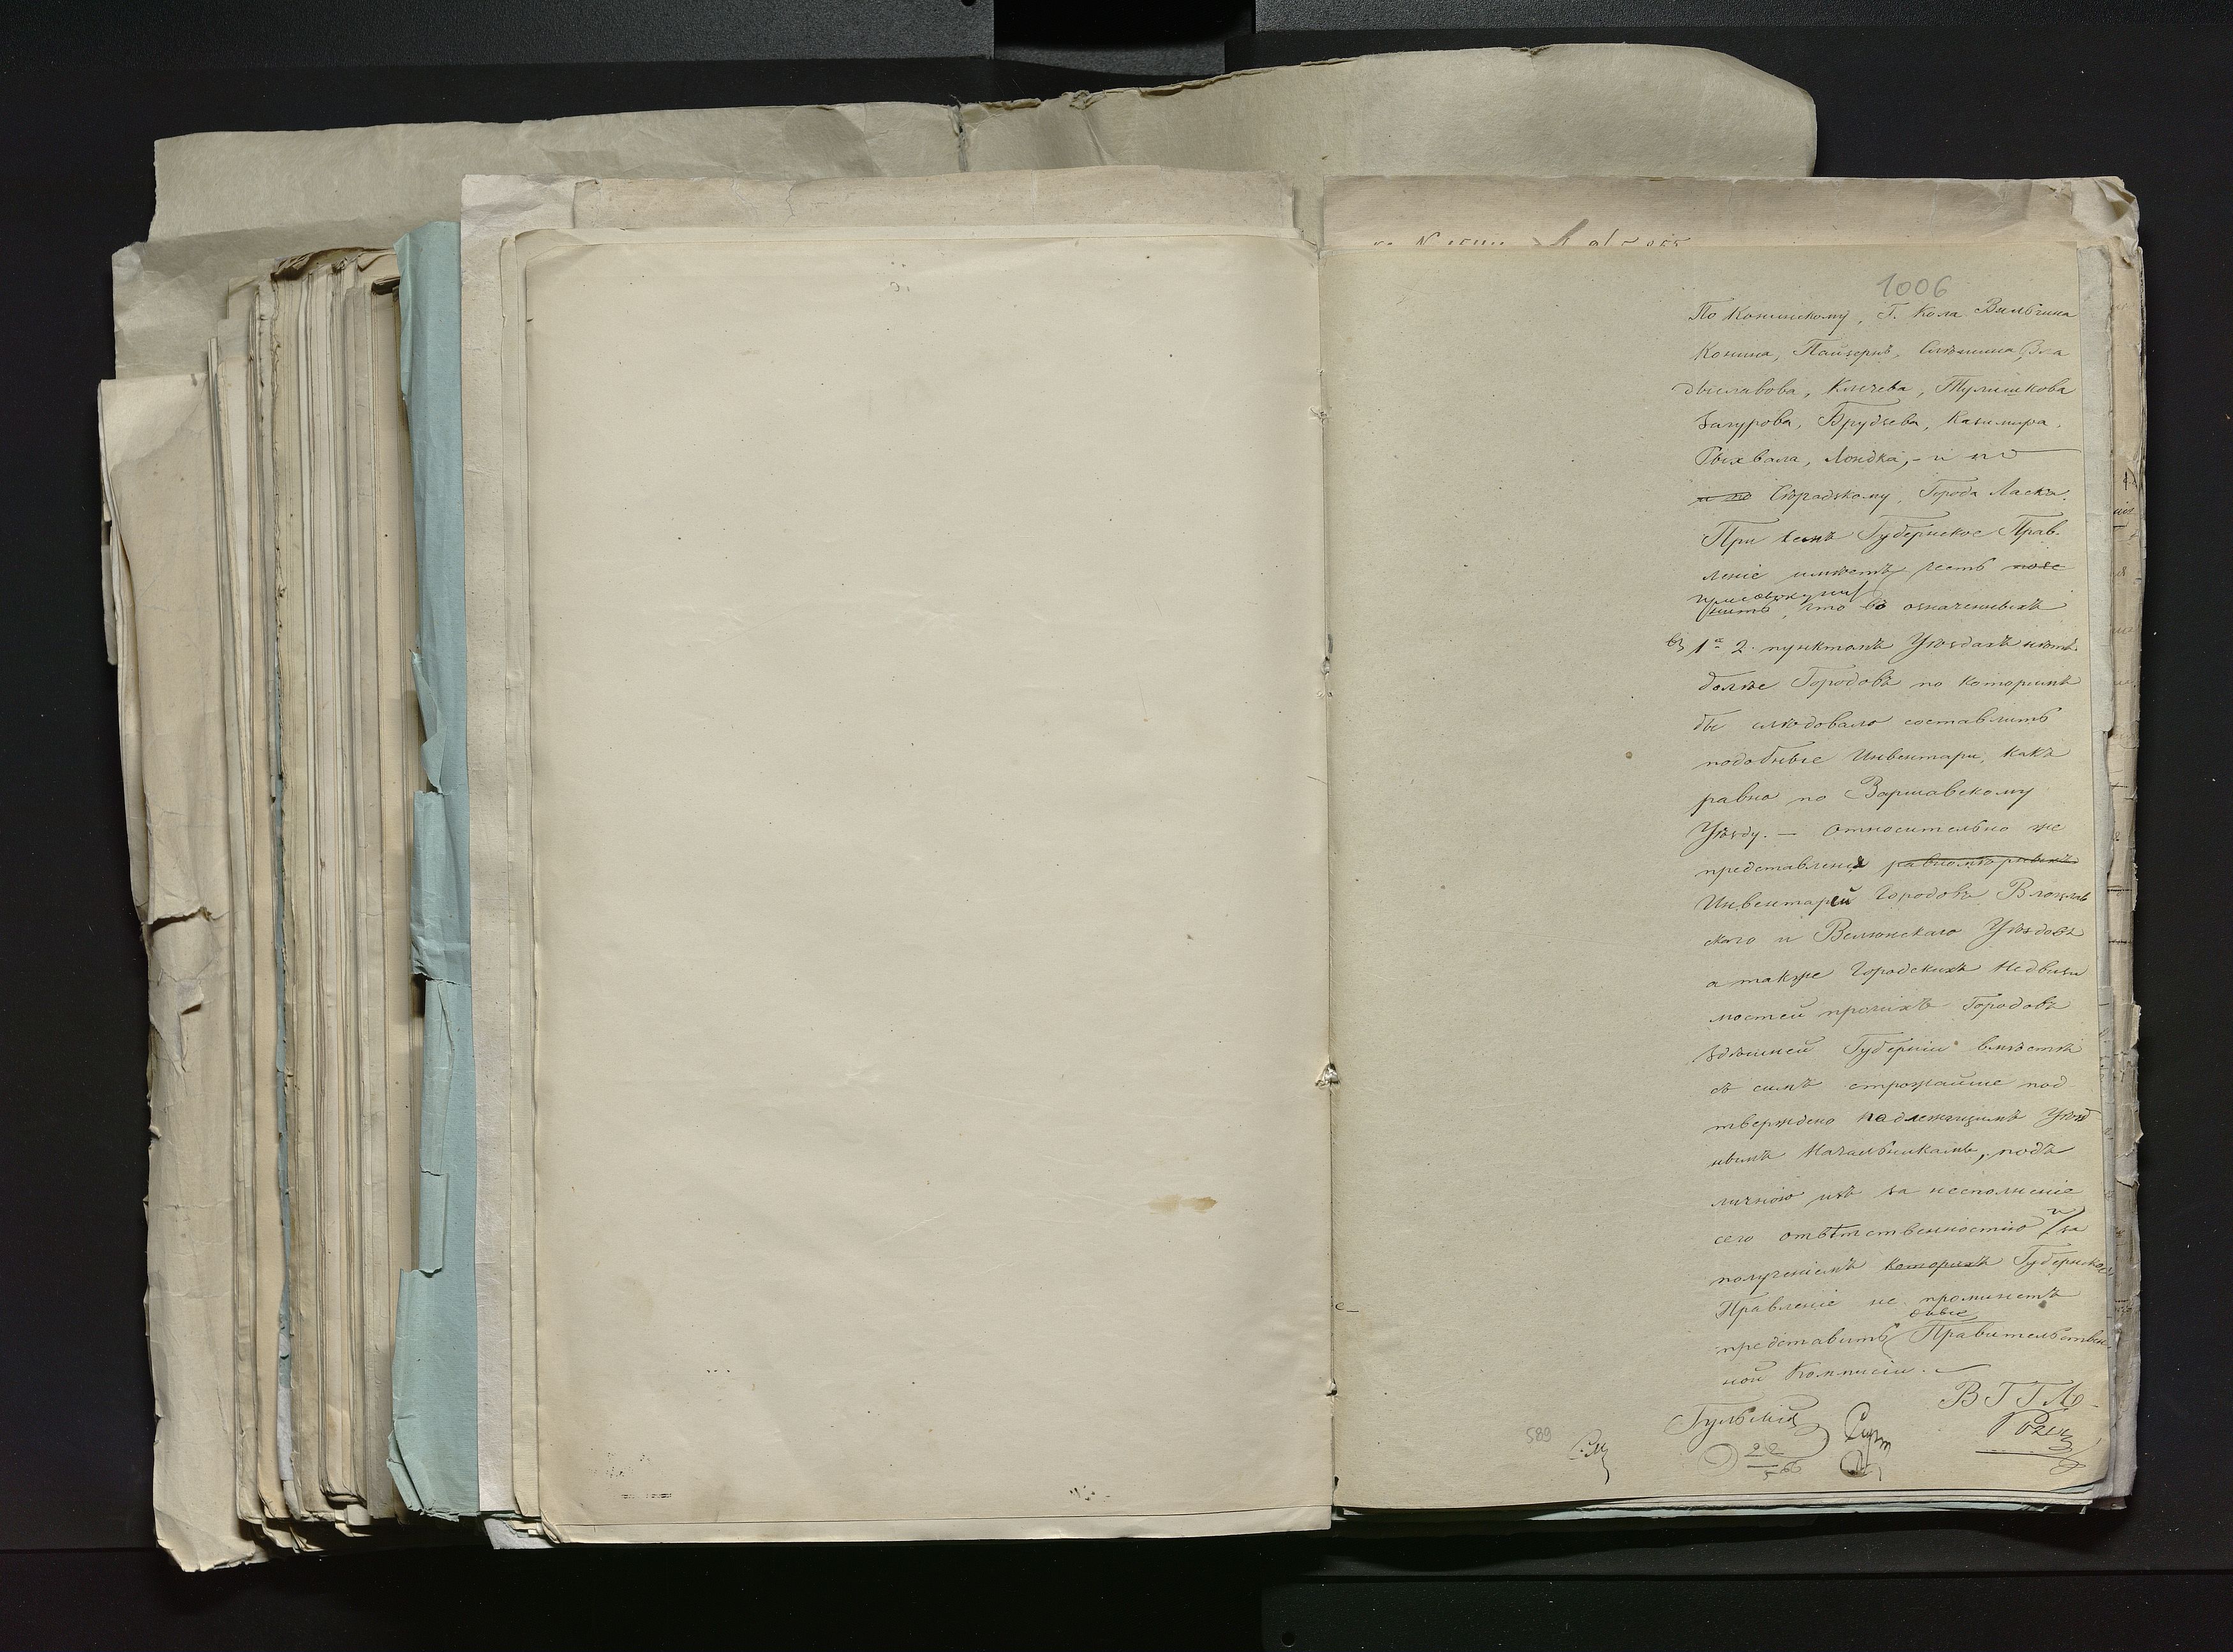 1006
По Конинскому, Г. Кола Вильчина
Конина, Пайзернъ, Слѣсина, Вла
дыславова, Клечева, Тулишкова
Загурова, Брудзева, Казимира,
Рыхвала, Лондка, - и по
и по Сѣрадзкому, Города Ласка.
При семъ Губернское Прав.
леніе имѣетъ честь пояс
присовокупить
нить, что въ означенныхъ
въ 1 и 2. пунктахъ Уѣздахъ нѣтъ
болѣе Городовъ по которымъ
бы слѣдовало составлять
подобные Инвентари, какъ
равно по Варшавскому
Уѣзду. — Относительно же
представленія равномѣрныхъ
Инвентарей Городовъ Влоцлав
скаго и Велюнскаго Уѣздовъ
а также Городскихъ Недвижи
мостей прочихъ Городовъ
здѣшней Губерніи вмѣстѣ
съ симъ строжайше под
тверждено надлежащимъ Уѣзд
нымъ Начальникамъ, подъ
личною ихъ за несполненіе
сего отвѣтственностію и за
полученіемъ которыхъ Губернское
Правленіе не преминетъ
оные
представить Правительствен
ной Коммисіи.
В Г Г Л
589
22
5 66